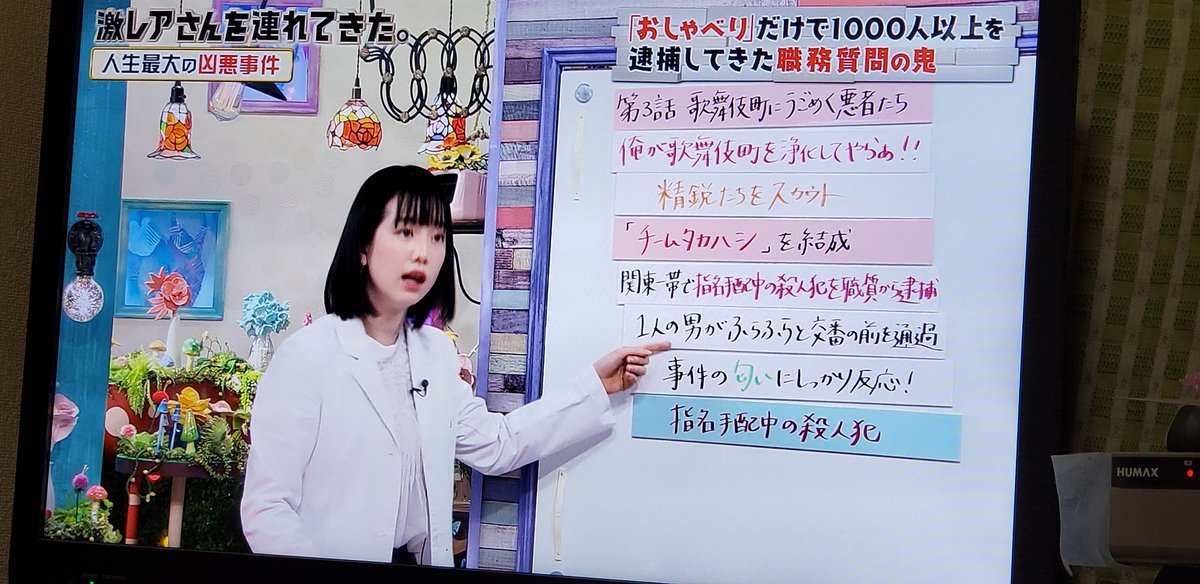 激レアさんを連れてきた。
人生最大の凶悪事件
「おしゃべり」だけで1000人以上を
逮捕してきた職務質問の鬼
第3話 歌舞伎町にうごめく悪者たち
俺が歌舞伎町を浄化してやらぁ!!
精鋭たちをスカウト
「チームタカハシ」を結成
関東一帯で指名手配中の殺人犯を職質から逮捕
1人の男がふらふらと交番の前を通過
事件の匂いにしっかり反応!
指名手配中の殺人犯
HUMAX